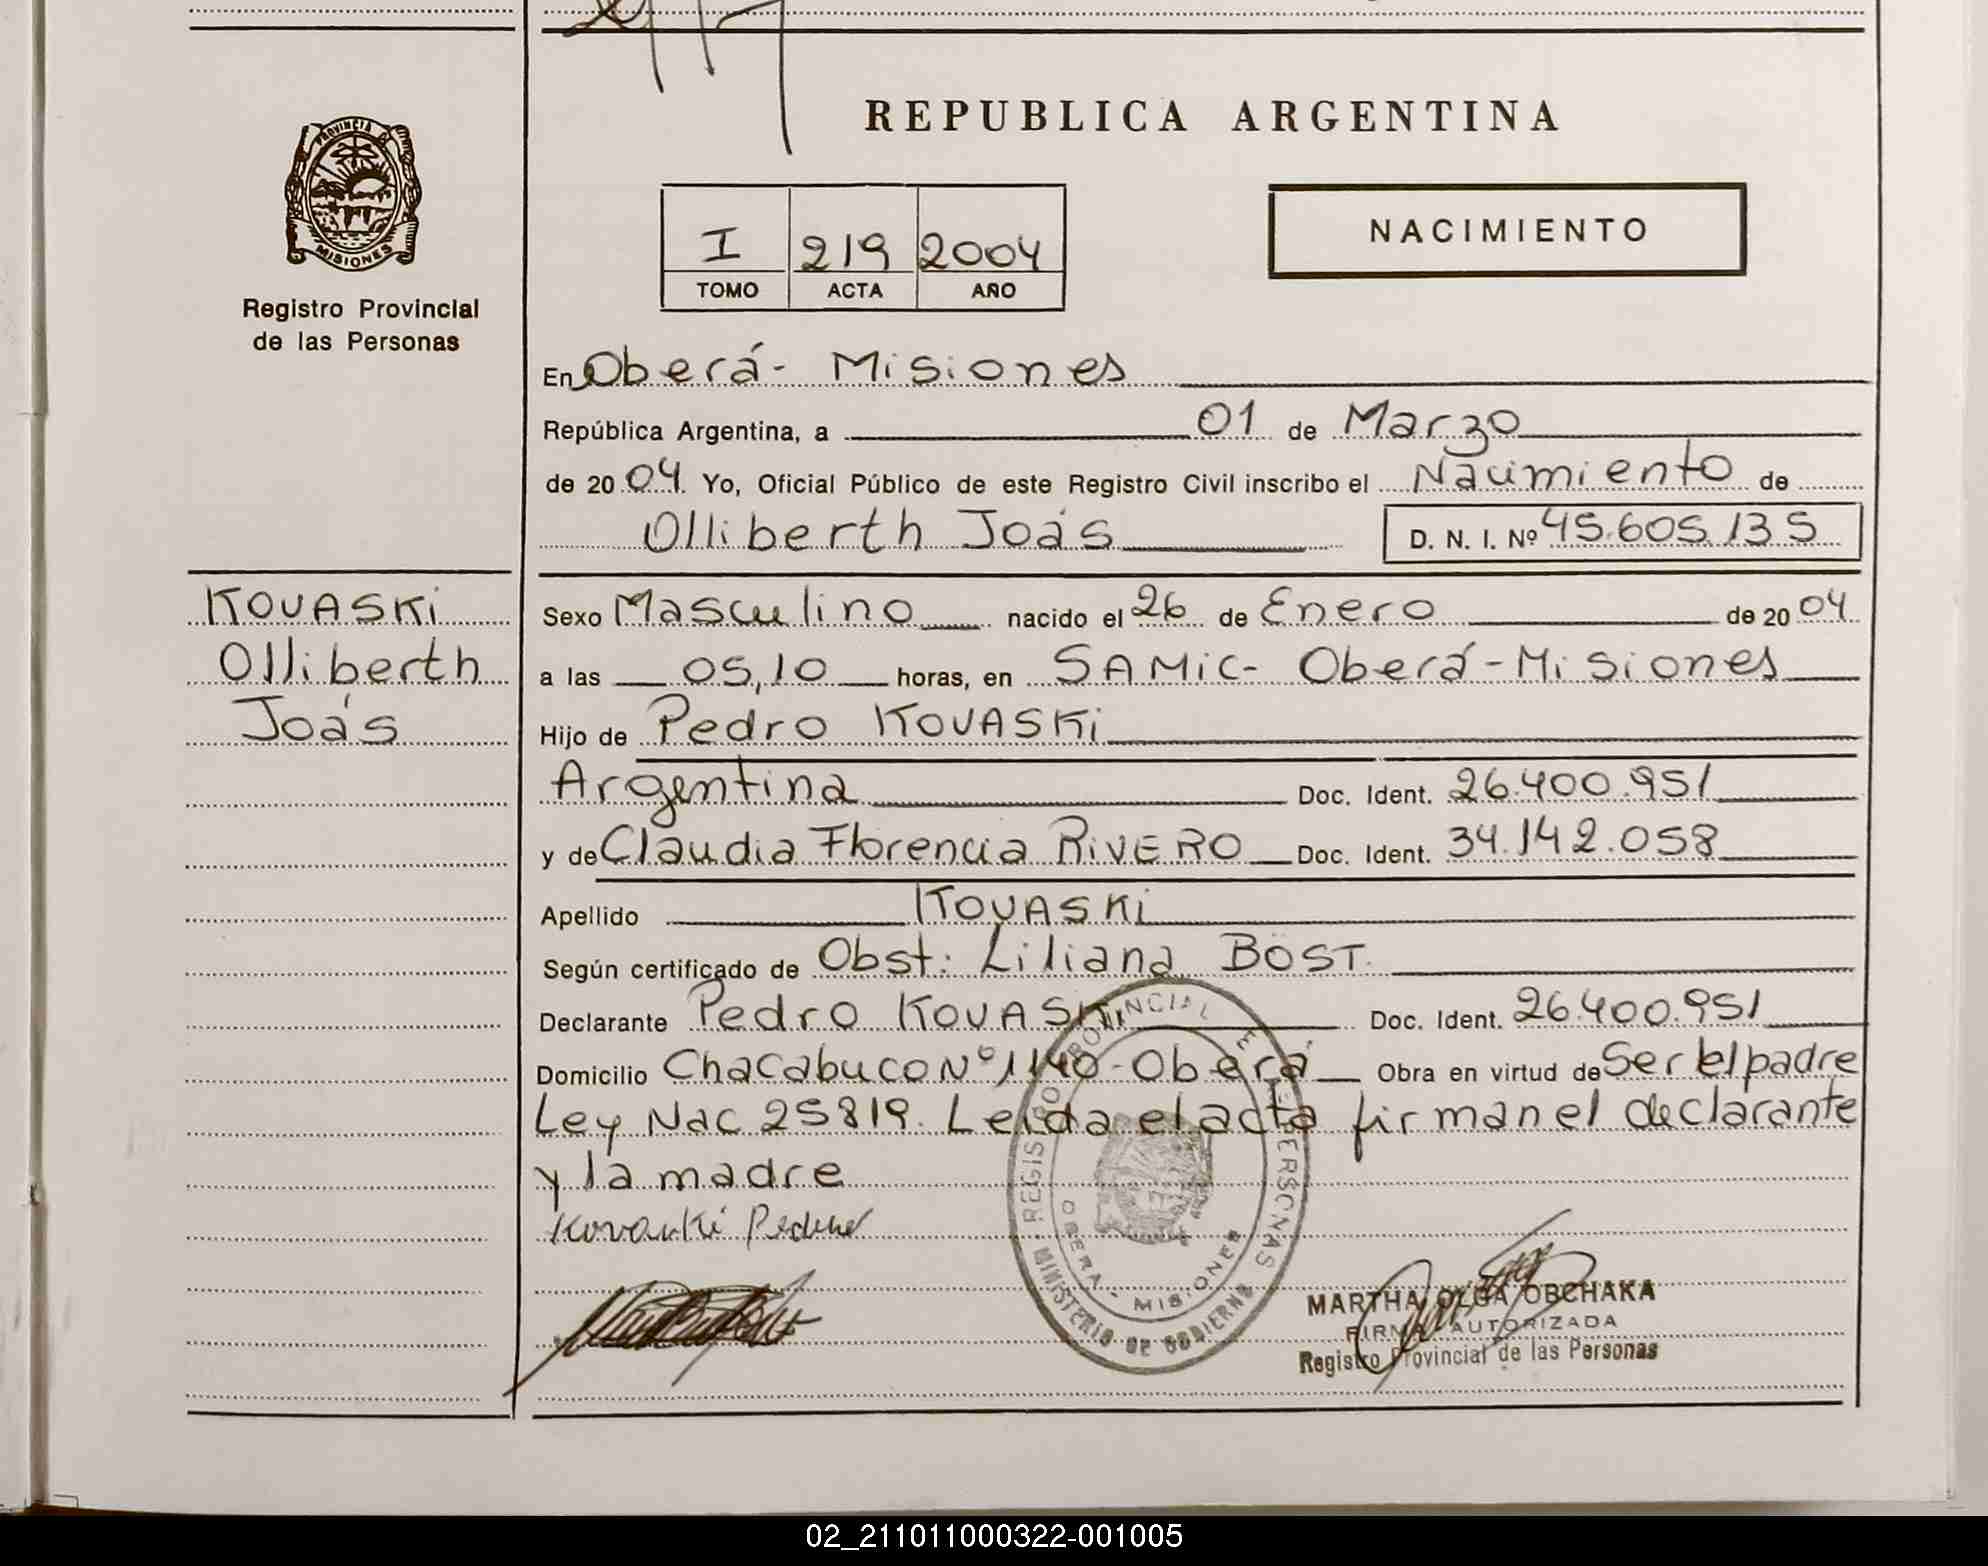 REPUBLICA ARGENTINA
PROVINCIA DE
MISIONES
Registro Provincial
de las Personas
I 219 2004
TOMO ACTA AÑO
NACIMIENTO
En Oberá - Misiones
República Argentina, a 01 de Marzo
de 2004 Yo, Oficial Público de este Registro Civil inscribo el Nacimiento de
Olliberth Joás D. N. I. Nº 45.605.135
KOVASKi
Olliberth
Joás
Sexo Masculino nacido el 26 de Enero de 2004
a las 05,10 horas, en SAMiC - Oberá - Misiones
Hijo de Pedro KOVASKi
Argentina Doc. Ident. 26.400.951
y de Claudia Florencia RiVERO Doc. Ident. 34.142.058
Apellido KOVASKi
Según certificado de Obst: Liliana BOST.
Declarante Pedro KOVASKi Doc. Ident. 26.400.951
Domicilio Chacabuco Nº 1140 - Oberá Obra en virtud de Ser El padre
Ley Nac 25819. Leida el acta firman el declarante
y la madre
Kovaski Pedro
REGISTRO PROVINCIAL DE LAS PERSONAS
OBERA - MISIONES
MINISTERIO DE GOBIERNO
MARTHA OLGA OBCHAKA
FIRMA AUTORIZADA
Registro Provincial de las Personas
02_211011000322-001005